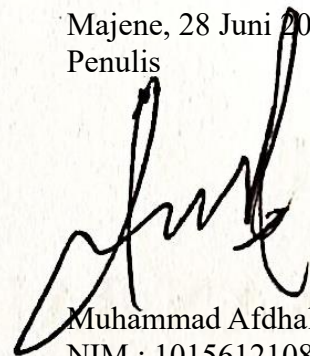 Majene, 28 Juni 20
Penulis
Muhammad Afdhal
NIM : 1015612108